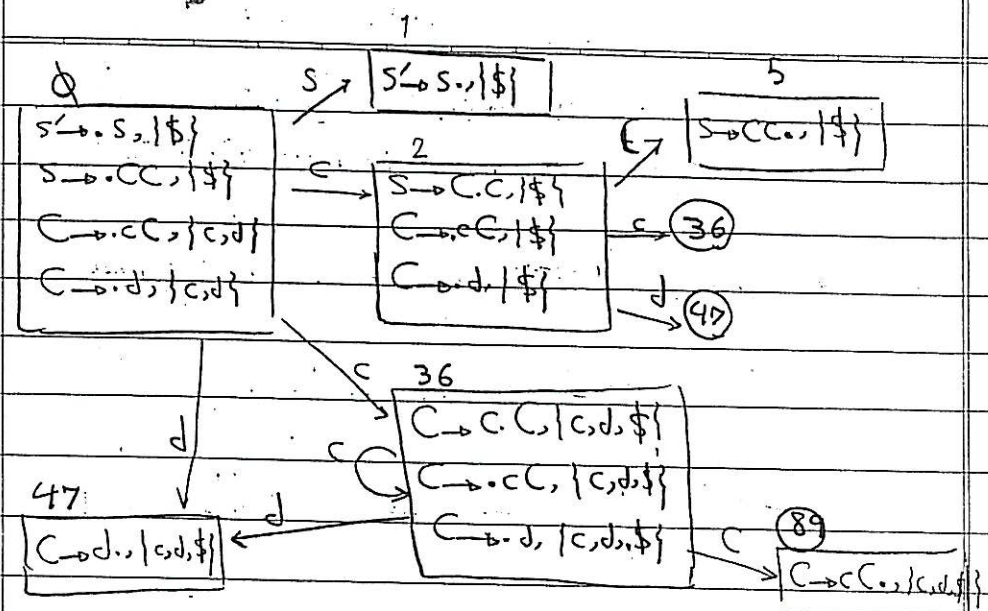 1
Φ
S
S'→S.,{$}
5
S'→.S,{$}
S→.CC,{$}
C→.cC,{c,d}
C→.d,{c,d}
C
2
S→C.C,{$}
C→.cC,{$}
C→.d,{$}
C
S→CC.,{$}
c
36
d
47
c
36
C→c.C,{c,d,$}
C→.cC,{c,d,$}
C→.d,{c,d,$}
c
d
d
47
C→d.,{c,d,$}
C
89
C→cC.,{c,d,$}